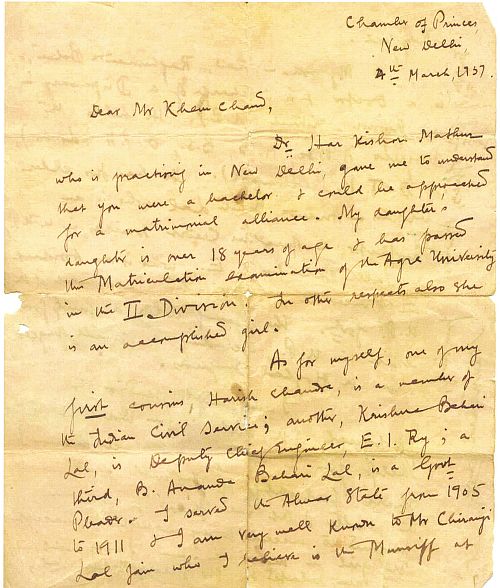 Chamber of Princes
New Delhi,
4th March, 1937.
Dear Mr Khem Chand,
Dr. Har Kishori Mathur
who is practising in New Delhi, gave me to understand
that you were a bachelor & could be approached
for a matrimonial alliance. My daughter's
daughter is over 18 years of age & has passed
the Matriculation examination of the Agra University
in the II Division. In other respects also she
is an accomplished girl.
As for myself, one of my
first cousins, Harish Chandra, is a member of
the Indian Civil Service; another, Krishna Behari
Lal, is Deputy Chief Engineer, E. I. Ry; a
third, B. Ananda Behari Lal, is a Govt
Pleader. I served the Alwar State from 1905
to 1911 & I am very well known to Mr Chiranji
Lal Jain who I believe is the Munsiff at